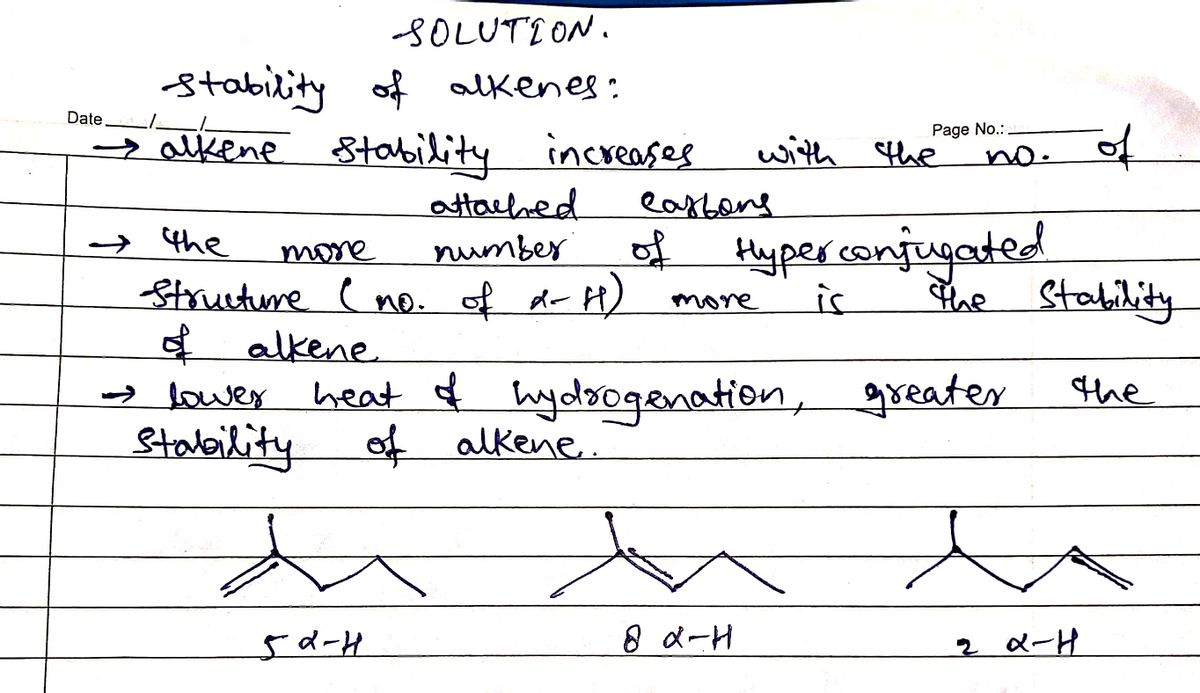 SOLUTION.
Stability of alkenes:
Date / /
Page No.:
→ alkene stability increases with the no. of
attached carbons
→ The more number of Hyperconjugated
Structure (no. of α-H) more is the Stability
of alkene
→ lower heat of hydrogenation, greater the
Stability of alkene.
5 α-H 8 α-H 2 α-H